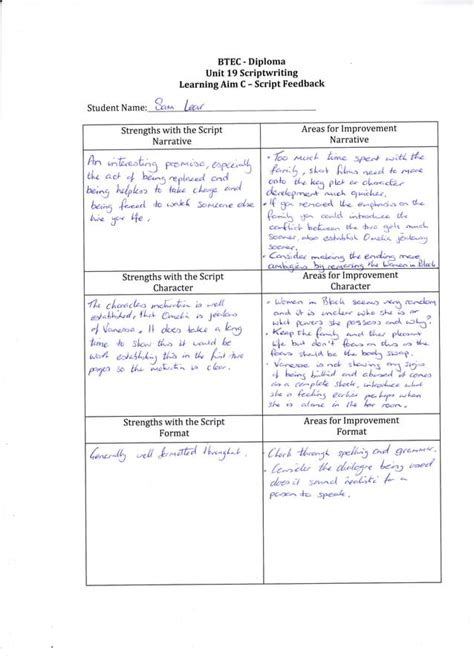 BTEC - Diploma
Unit 19 Scriptwriting
Learning Aim C – Script Feedback
Student Name: Sam Lear
Strengths with the Script
Narrative
An interesting premise, especially
the act of being replaced and
being helpless to take charge and
being forced to watch someone else
live your life.
Areas for Improvement
Narrative
• Too much time spent with the
family, short films need to move
onto the key plot or character
development much quicker.
• If you removed the emphasis on the
family you could introduce the
conflict between the two girls much
sooner, also establish Omelia jealousy
sooner.
• Consider making the ending more
ambigious by removing the Women in Black
Strengths with the Script
Character
The characters motivation is well
established, that Omelia is jealous
of Vanessa. It does take a long
time to show this it would be
worth establishing this in the first two
pages so the motivation is clear.
Areas for Improvement
Character
• Women in Black seems very random
and it is unclear who she is or
what powers she possess and why?
• Keep the family and their pleasant
life but don't focus on this as the
focus should be the body swap.
• Vanessa is not showing any signs
of being bullied and abused it comes
as a complete shock, introduce what
she is feeling earlier perhaps when
she is alone in the her room.
Strengths with the Script
Format
Generally well formatted throughout.
Areas for Improvement
Format
• Check through spelling and grammar.
• Consider the dialogue being used
does it sound realistic for a
person to speak.